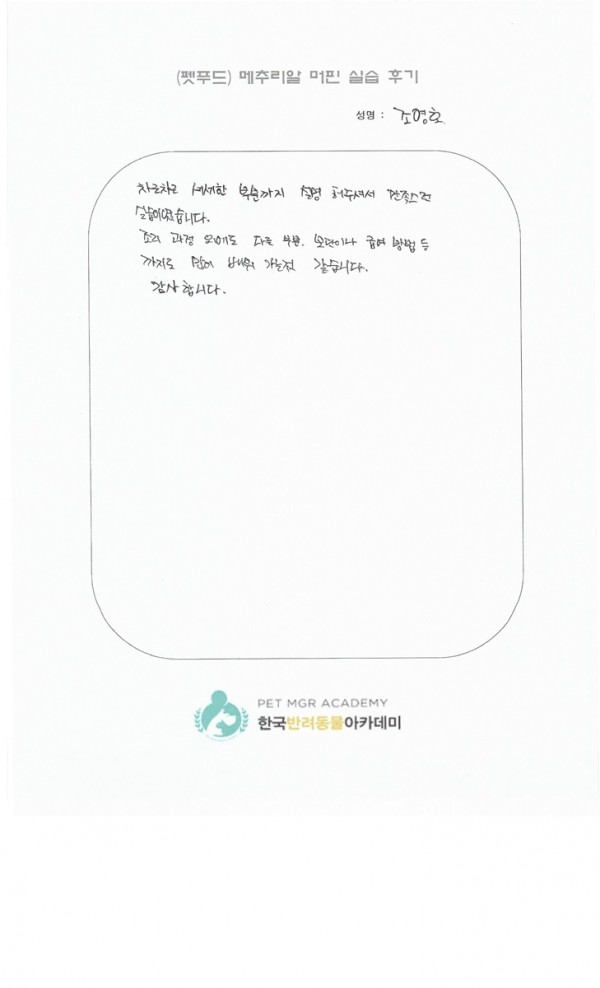 (펫푸드) 메추리알 머핀 실습 후기
성명 : 조영호
차근차근 세세한 부분까지 설명 해주셔서 만족스런
실습이었습니다.
조리 과정 외에도 다른 부분. 보관이나 급여 방법 등
까지도 많이 배워 가는것 같습니다.
감사합니다.
PET MGR ACADEMY
한국반려동물아카데미